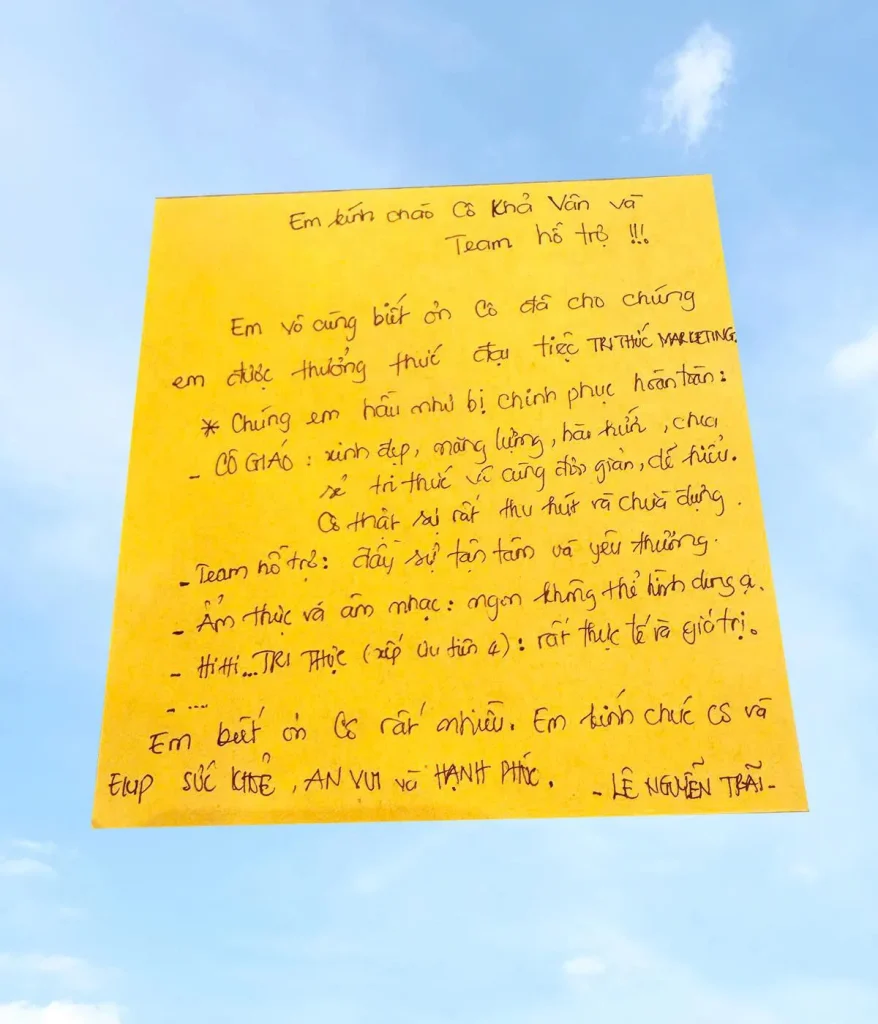 Em kính chào Cô Khả Vân và
Team hỗ trợ !!!
Em vô cùng biết ơn Cô đã cho chúng
em được thưởng thức đại tiệc TRI THỨC MARKETING.
* Chúng em hầu như bị chinh phục hoàn toàn:
- CÔ GIÁO: xinh đẹp, năng lượng, hài hước, chia
sẻ tri thức vô cùng đơn giản, dễ hiểu.
Cô thật sự rất thu hút và chứa đựng.
- Team hỗ trợ: đầy sự tận tâm và yêu thương.
- Ẩm thực và âm nhạc: ngon không thể hình dung ạ.
- HiHi... TRI THỨC (xếp ưu tiên 4): rất thực tế và giá trị.
- ....
Em biết ơn Cô rất nhiều. Em kính chúc Cô và
Elup SỨC KHOẺ, AN VUI và HẠNH PHÚC. - LÊ NGUYỄN TRÃI -